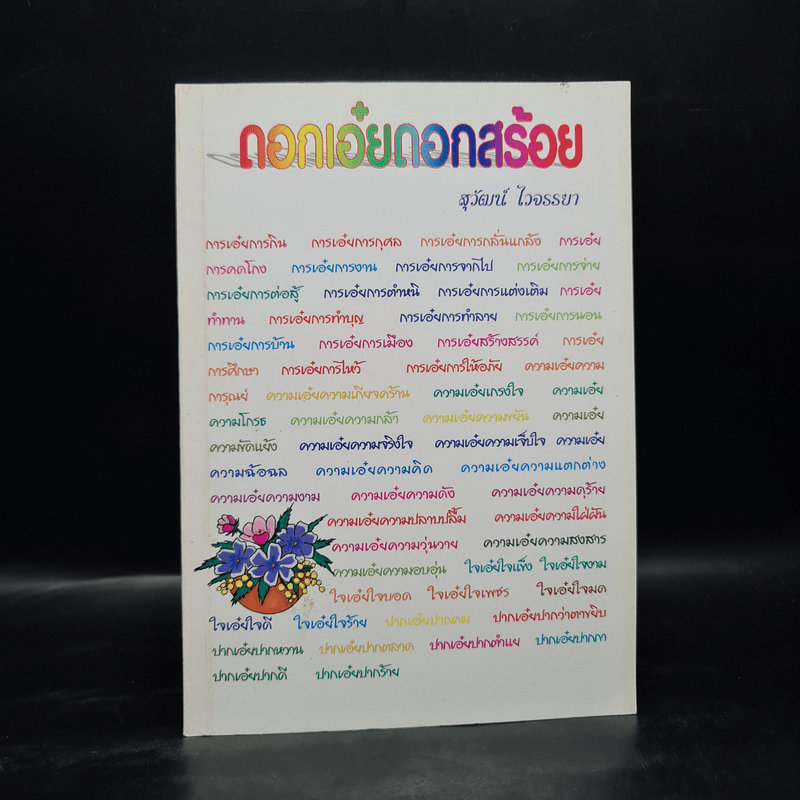 ดอกเอ๋ยดอกสร้อย
สุวัฒน์ ไวจรรยา
การเอ๋ยการกิน การเอ๋ยการกุศล การเอ๋ยการกลั่นแกล้ง การเอ๋ย
การคดโกง การเอ๋ยการงาน การเอ๋ยการจากไป การเอ๋ยการจ่าย
การเอ๋ยการต่อสู้ การเอ๋ยการตำหนิ การเอ๋ยการแต่งเติม การเอ๋ย
ทำทาน การเอ๋ยการทำบุญ การเอ๋ยการทำลาย การเอ๋ยการนอน
การเอ๋ยการบ้าน การเอ๋ยการเมือง การเอ๋ยสร้างสรรค์ การเอ๋ย
การศึกษา การเอ๋ยการไหว้ การเอ๋ยการให้อภัย ความเอ๋ยความ
การุณย์ ความเอ๋ยความเกียจคร้าน ความเอ๋ยเกรงใจ ความเอ๋ย
ความโกรธ ความเอ๋ยความกล้า ความเอ๋ยความขยัน ความเอ๋ย
ความขัดแย้ง ความเอ๋ยความจริงใจ ความเอ๋ยความเจ็บใจ ความเอ๋ย
ความฉ้อฉล ความเอ๋ยความคิด ความเอ๋ยความแตกต่าง
ความเอ๋ยความงาม ความเอ๋ยความดัง ความเอ๋ยความดุร้าย
ความเอ๋ยความปลาบปลื้ม ความเอ๋ยความใฝ่ฝัน
ความเอ๋ยความวุ่นวาย ความเอ๋ยความสงสาร
ความเอ๋ยความอบอุ่น ใจเอ๋ยใจแข็ง ใจเอ๋ยใจงาม
ใจเอ๋ยใจบอด ใจเอ๋ยใจเพชร ใจเอ๋ยใจมด
ใจเอ๋ยใจดี ใจเอ๋ยใจร้าย ปากเอ๋ยปากคม ปากเอ๋ยปากว่าตาขยิบ
ปากเอ๋ยปากหวาน ปากเอ๋ยปากตลาด ปากเอ๋ยปากตำแย ปากเอ๋ยปากกา
ปากเอ๋ยปากดี ปากเอ๋ยปากร้าย